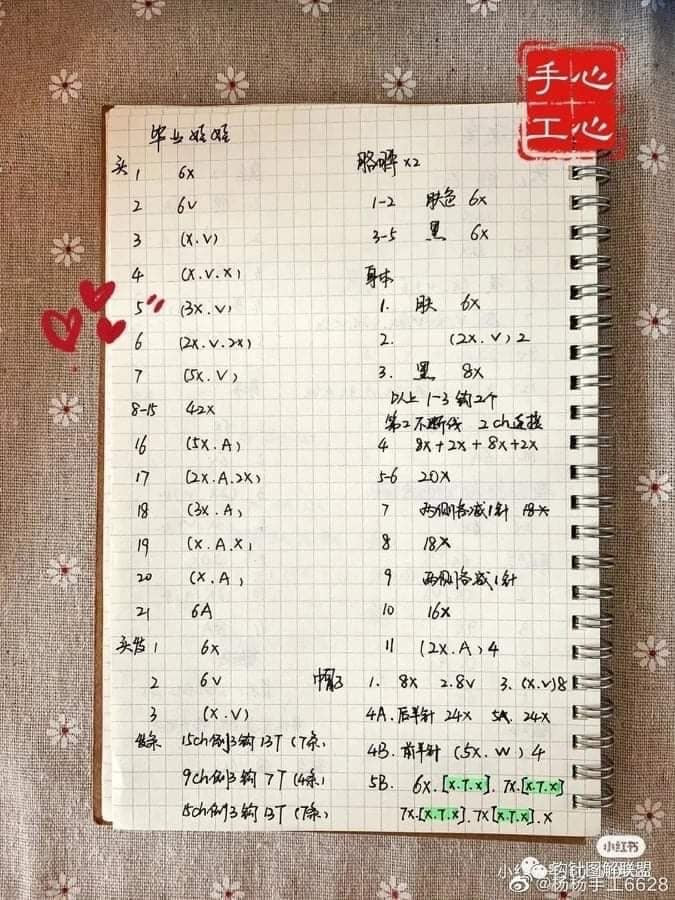 手心
工心
毕业娃娃
头 1 6x
2 6v
3 (x.v)
4 (x.v.x)
5 (3x.v)
6 (2x.v.2x)
7 (5x.v)
8-15 42x
16 (5x.A)
17 (2x.A.2x)
18 (3x.A)
19 (x.A.x)
20 (x.A)
21 6A
头发 1 6x
2 6v
3 (x.v)
15ch倒3钩13T (7条)
9ch倒3钩7T (4条)
15ch倒3钩13T (7条)
胳膊 x2
1-2 肤色 6x
3-5 黑 6x
身体
1. 肤 6x
2. (2x.v)2
3. 黑 8x
以上1-3钩2个
第2不断线 2ch连接
4 8x+2x+8x+2x
5-6 20x
7 两侧各减1针 18x
8 18x
9 两侧各减1针
10 16x
11 (2x.A)4
帽子 1. 8x 2. 8v 3. (x.v)8
4A. 后半针 24x 5A. 24x
4B. 前半针 (5x.W)4
5B. 6x.[x.T.x].7x.[x.T.x]
7x.[x.T.x].7x[x.T.x].x
小红书
钩针图解联盟
@杨杨手工6628